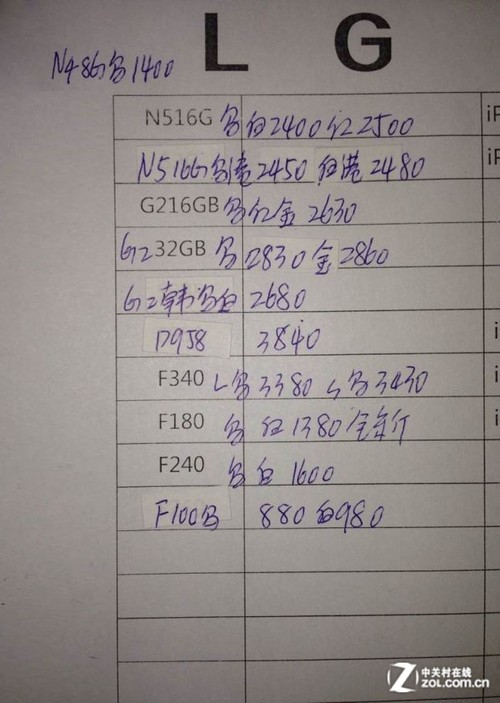 L G
N4 8G 黑1400
N516G 黑白2400 红2500
N516G 黑港2450 白港2480
G216GB 黑红金2630
G2 32GB 黑2830金2860
G2韩黑白2680
D958 3840
F340 L黑3380 S黑3430
F180 黑白1380全新
F240 黑白1600
F100黑 880白980
iP
iP
i
i
i
中关村在线
ZOL.COM.CN